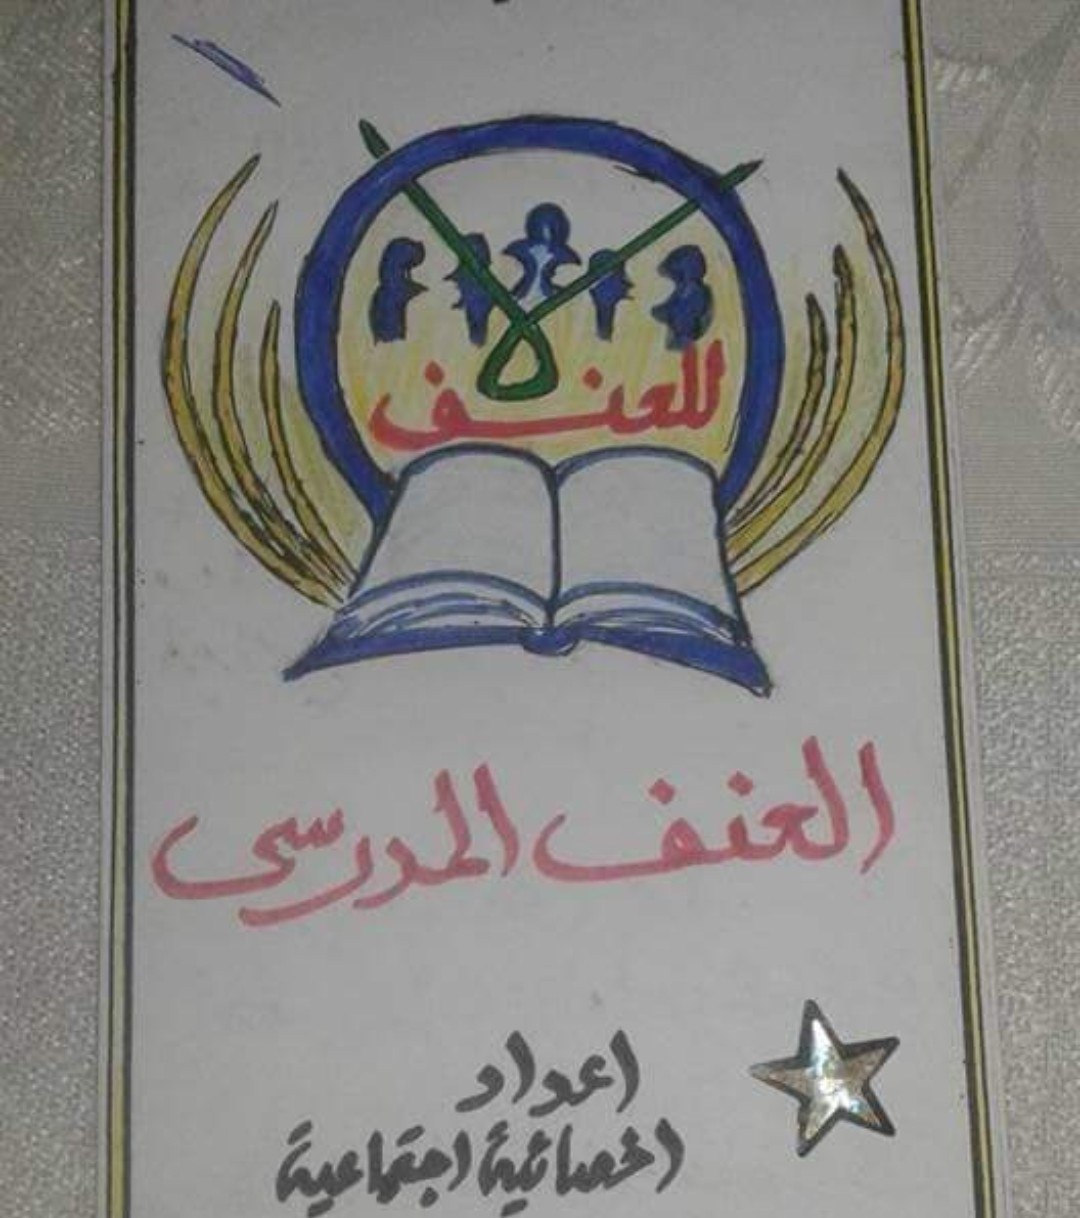 لا
للعنف
العنف المدرسى
اعداد
اخصائية اجتماعية